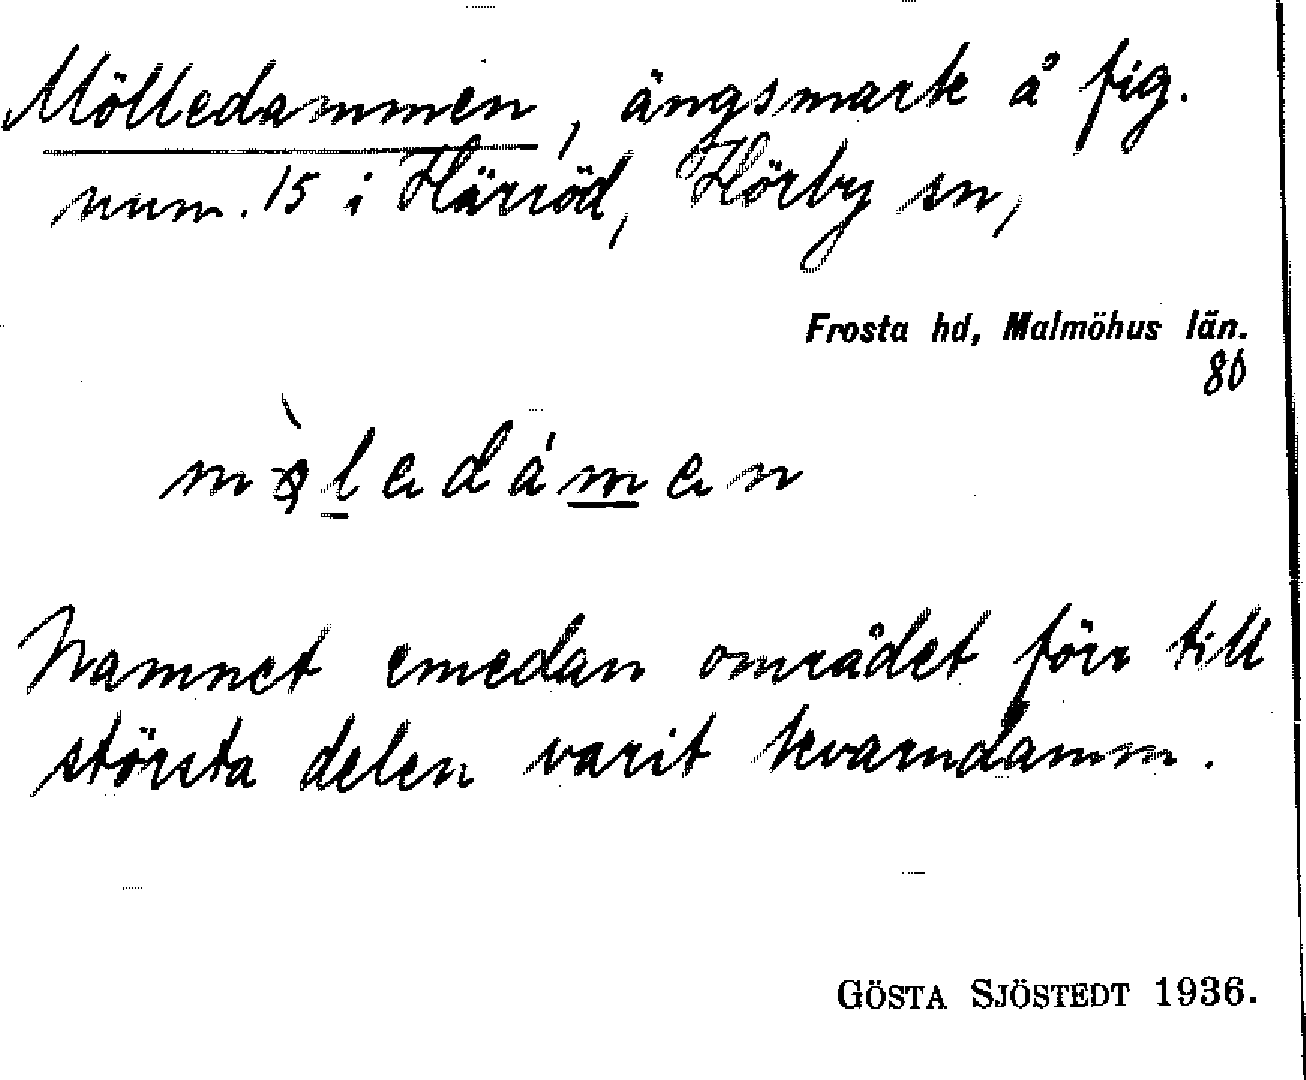 Mölledammen, ängsmark å fig.
num. 15 i Härröd, Hörby sn,
Frosta hd, Malmöhus län.
80
Namnet emedan området förr till
största delen varit kvarndamm.
GÖSTA SJÖSTEDT 1936.